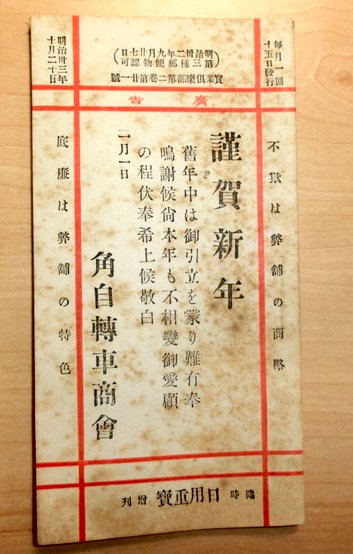 毎月一回
十五日發行
明治卅二年九月廿七日
第三種郵便物認可
實業倶樂部第二卷第廿一號
明治卅三年
十月二十日
廣告
不欺は弊舖の商略
謹賀新年
舊年中は御引立を蒙り難有奉
鳴謝候尙本年も不相變御愛顧
の程伏奉希上候敬白
一月一日
角自轉車商會
底廉は弊舖の特色
臨時 日用重寶 增刊